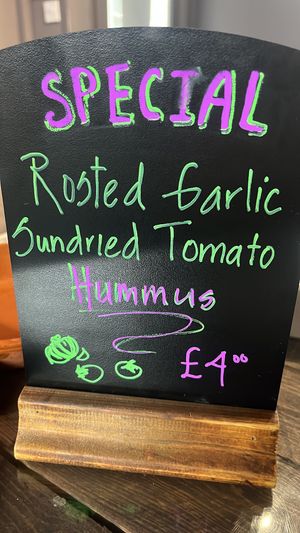 SPECIAL
Rosted Garlic
Sundried Tomato
Hummus
£4⁰⁰